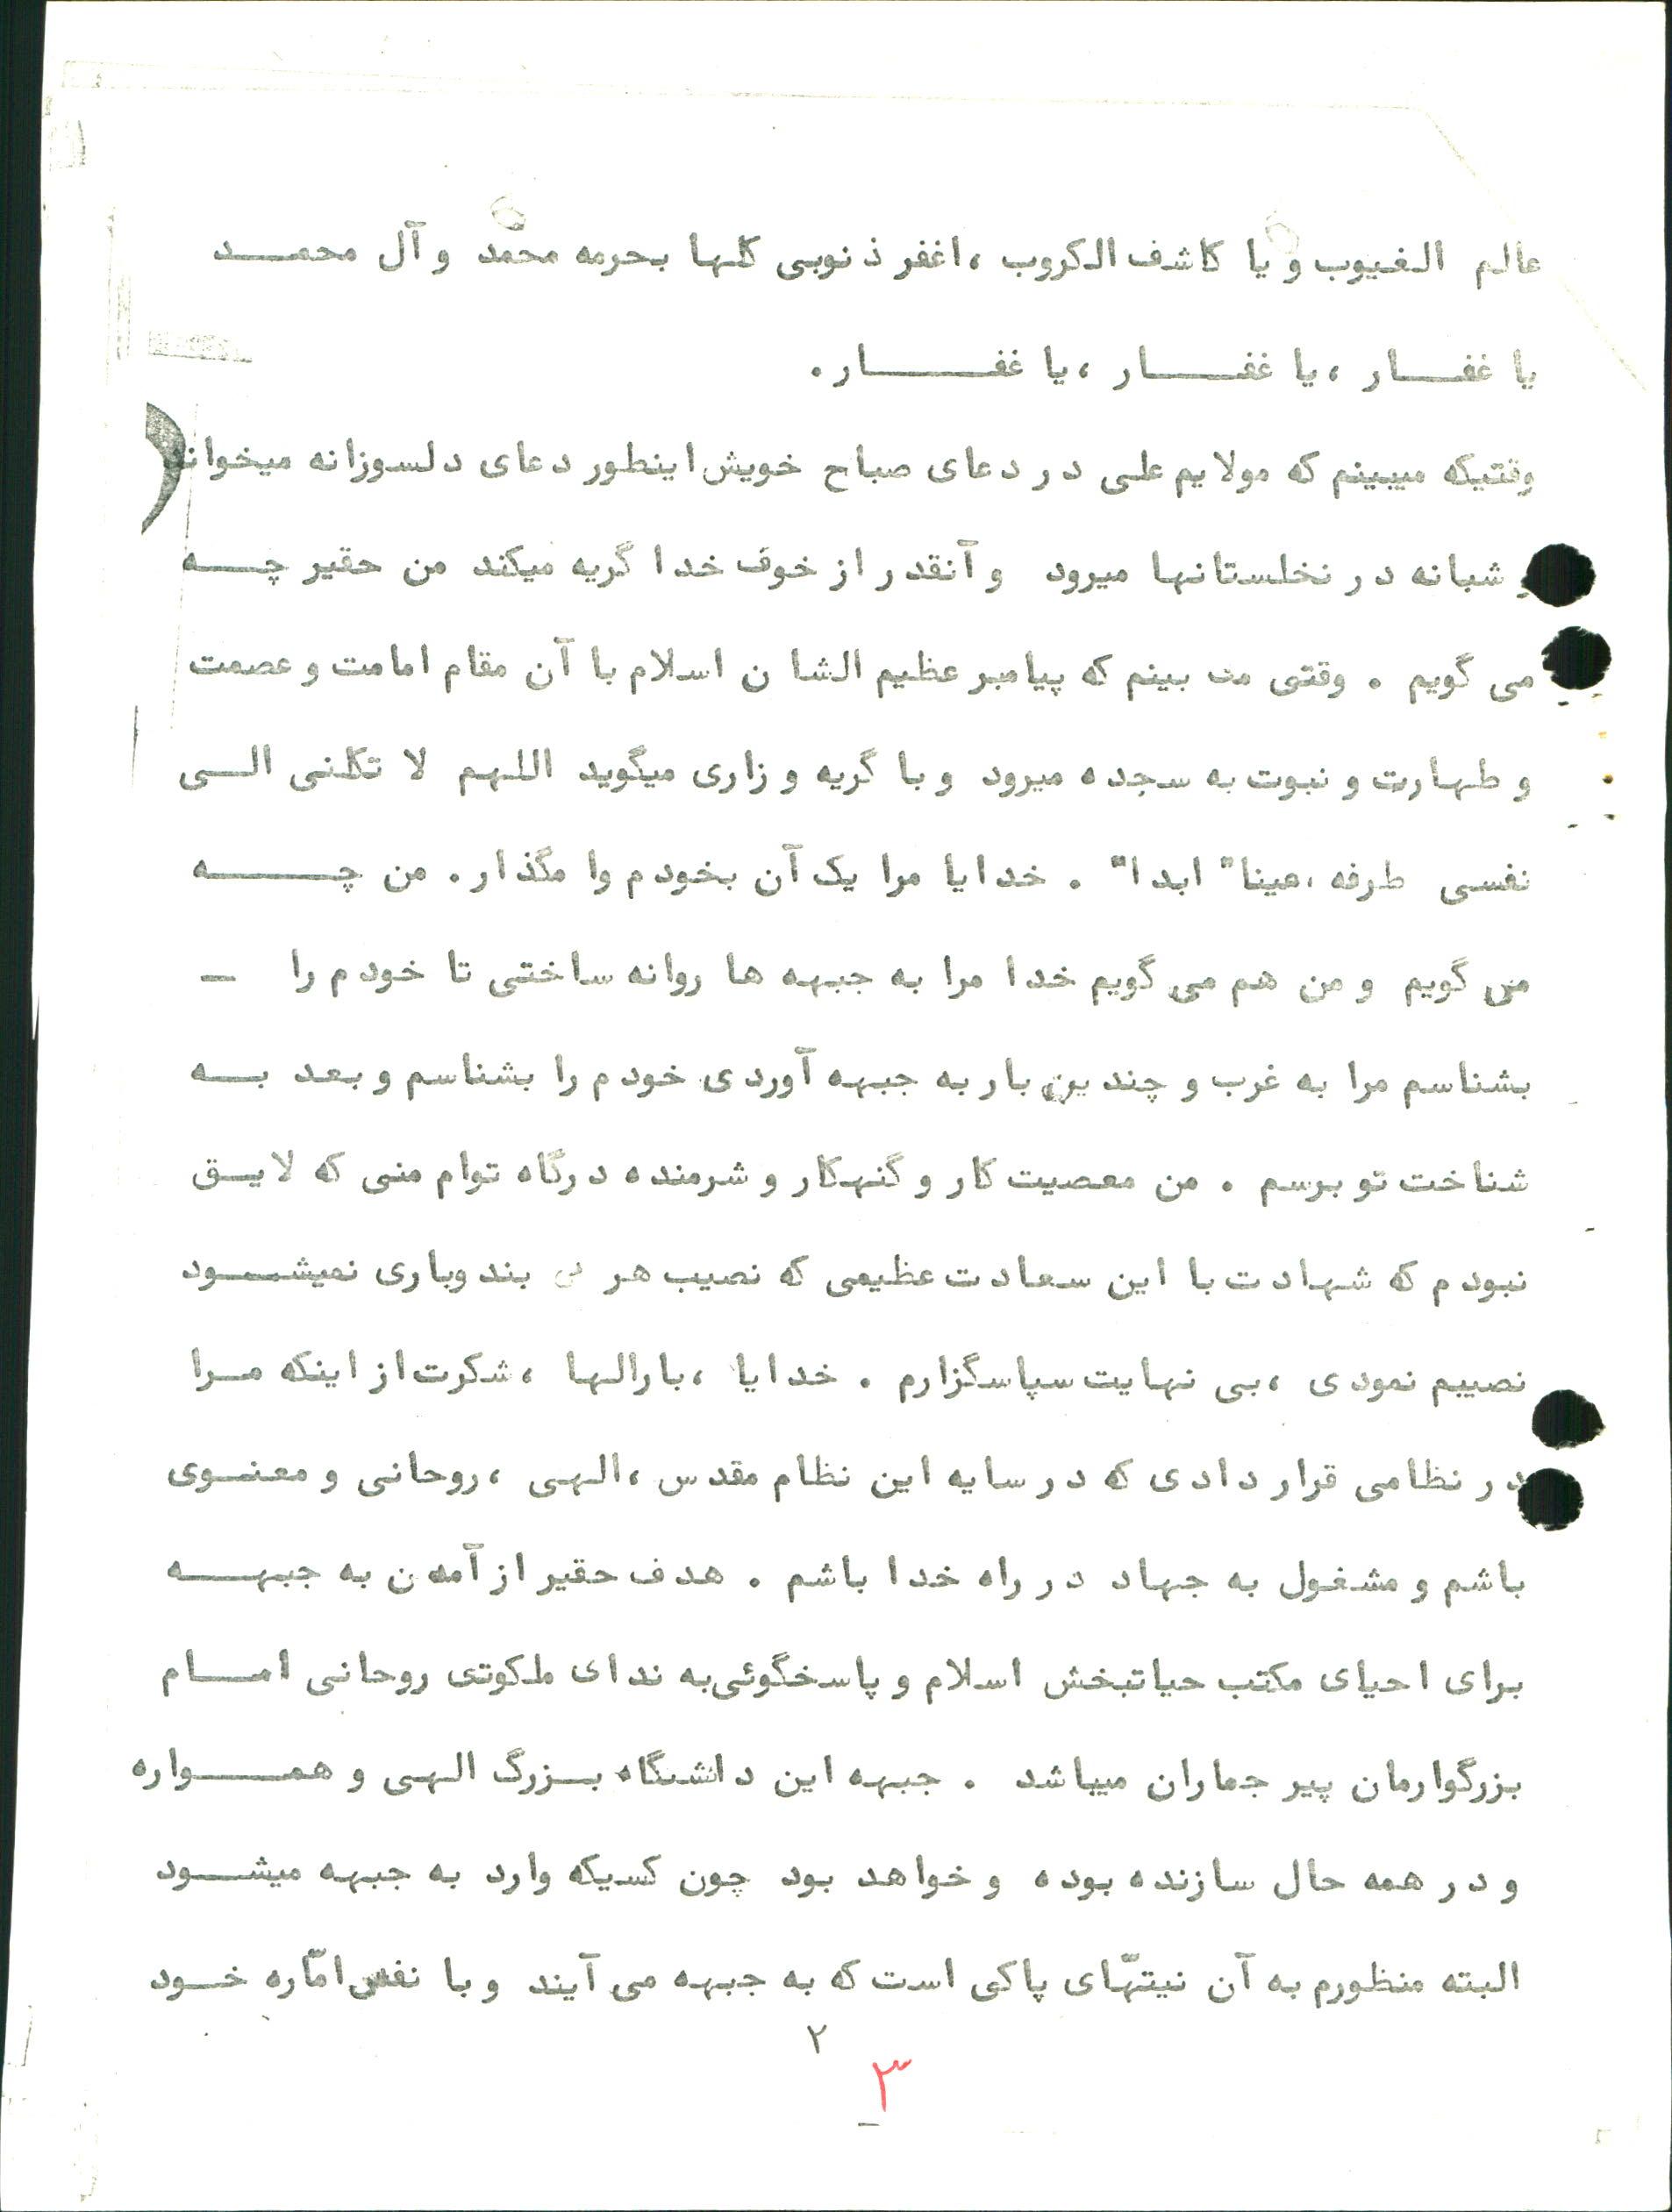 عالم الغیوب و یا کاشف الکروب ، اغفر ذنوبی کلها بحرمه محمد و آل محمد
یا غفار ، یا غفار ، یا غفار .
وقتیکه میبینم که مولایم علی در دعای صباح خویش اینطور دعای دلسوزانه میخواند
و شبانه در نخلستانها میرود و آنقدر از خوف خدا گریه میکند من حقیر چه
می گویم . وقتی می بینم که پیامبر عظیم الشان اسلام با آن مقام امامت و عصمت
و طهارت و نبوت به سجده میرود و با گریه و زاری میگوید اللهم لا تکلنی الی
نفسی طرفه ، عینا" ابدا" . خدایا مرا یک آن بخودم وا مگذار . من چه
می گویم و من هم می گویم خدا مرا به جبهه ها روانه ساختی تا خودم را -
بشناسم مرا به غرب و چندین بار به جبهه آوردی خودم را بشناسم و بعد به
شناخت تو برسم . من معصیت کار و گنهکار و شرمنده درگاه توام منی که لایق
نبودم که شهادت با این سعادت عظیمی که نصیب هر بی بندوباری نمیشود
نصیبم نمودی ، بی نهایت سپاسگزارم . خدایا ، بارالها ، شکرت از اینکه مرا
در نظامی قرار دادی که در سایه این نظام مقدس ، الهی ، روحانی و معنوی
باشم و مشغول به جهاد در راه خدا باشم . هدف حقیر از آمدن به جبهه
برای احیای مکتب حیاتبخش اسلام و پاسخگوئی به ندای ملکوتی روحانی امام
بزرگوارمان پیر جماران میباشد . جبهه این دانشگاه بزرگ الهی و همواره
و در همه حال سازنده بوده و خواهد بود چون کسیکه وارد به جبهه میشود
البته منظورم به آن نیتهّای پاکی است که به جبهه می آیند و با نفس امّاره خود
۲
۳